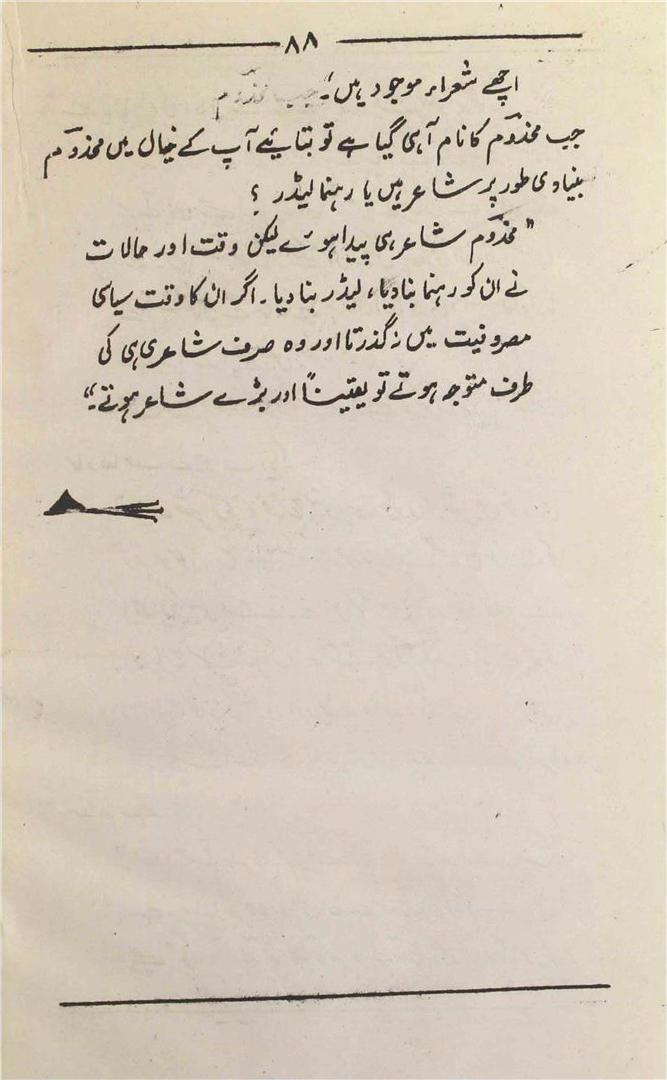 ۸۸
اچھے شعراء موجود ہیں۔"
جب مخدوم کا نام آ ہی گیا ہے تو بتایئے آپ کے خیال میں مخدوم
بنیادی طور پر شاعر ہیں یا رہنما لیڈر ؟
"مخدوم شاعر ہی پیدا ہوئے لیکن وقت اور حالات
نے ان کو رہنما بنا دیا، لیڈر بنا دیا۔ اگر ان کا وقت سیاسی
مصروفیت میں نہ گذرتا اور وہ صرف شاعری ہی کی
طرف متوجہ ہوتے تو یقیناً اور بڑے شاعر ہوتے۔"